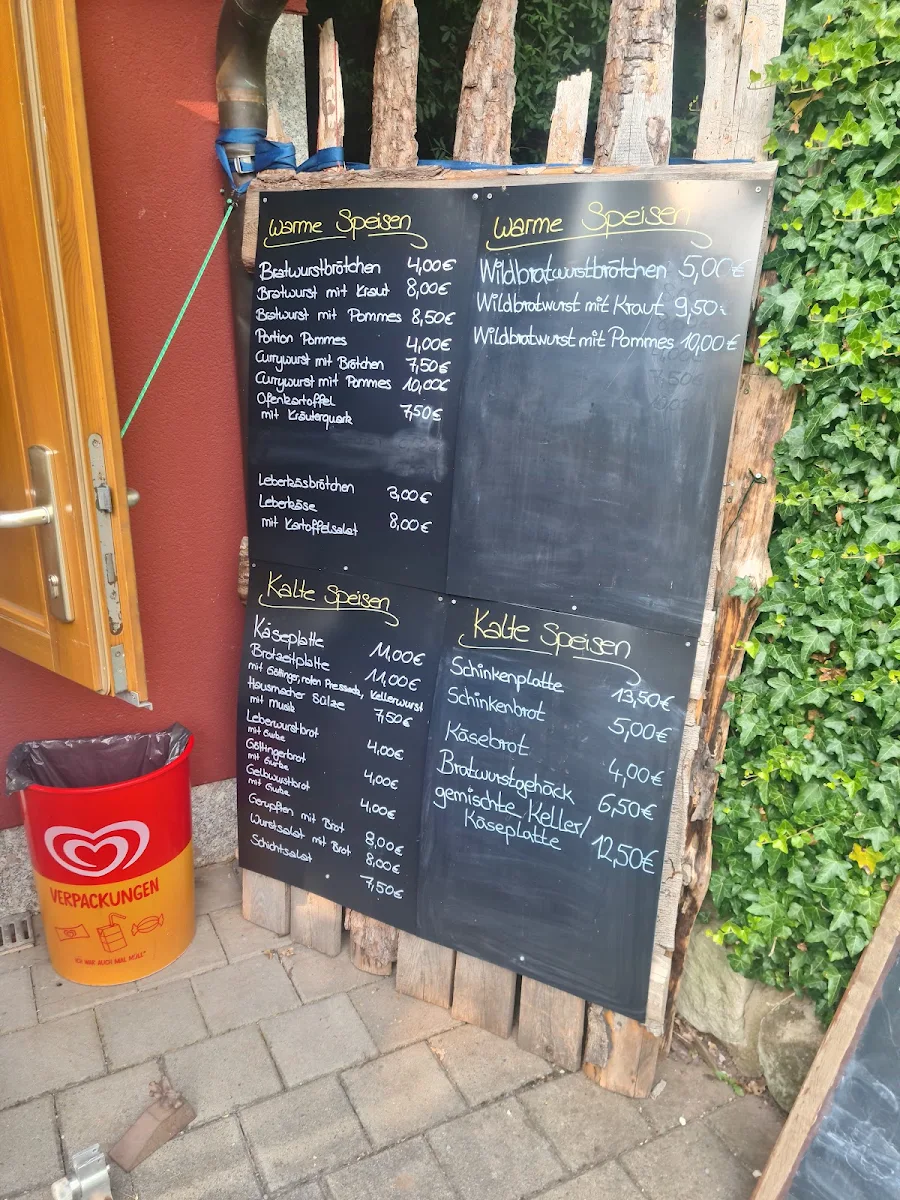 Warme Speisen
Bratwurstbrötchen 4,00€
Bratwurst mit Kraut 8,00€
Bratwurst mit Pommes 8,50€
Portion Pommes 4,00€
Currywurst mit Brötchen 7,50€
Currywurst mit Pommes 10,00€
Ofenkartoffel
mit Kräuterquark 7,50€
Leberkäsbrötchen 3,00€
Leberkäse
mit Kartoffelsalat 8,00€
Warme Speisen
Wildbratwurstbrötchen 5,00€
Wildbratwurst mit Kraut 9,50€
Wildbratwurst mit Pommes 10,00€
Kalte Speisen
Käseplatte 11,00€
Brotzeitplatte 11,00€
mit Göttinger, roten Pressack, Kellerwurst
Hausmacher Sülze 7,50€
mit Musik
Leberwurstbrot 4,00€
mit Gurke
Göttingerbrot 4,00€
mit Gurke
Gelbwurstbrot 4,00€
mit Gurke
Gerupften mit Brot 8,00€
Wurstsalat mit Brot 8,00€
Schichtsalat 7,50€
Kalte Speisen
Schinkenplatte 13,50€
Schinkenbrot 5,00€
Käsebrot 4,00€
Bratwurstgehäck 6,50€
gemischte Keller/
Käseplatte 12,50€
VERPACKUNGEN
"ICH WAR AUCH MAL MÜLL"